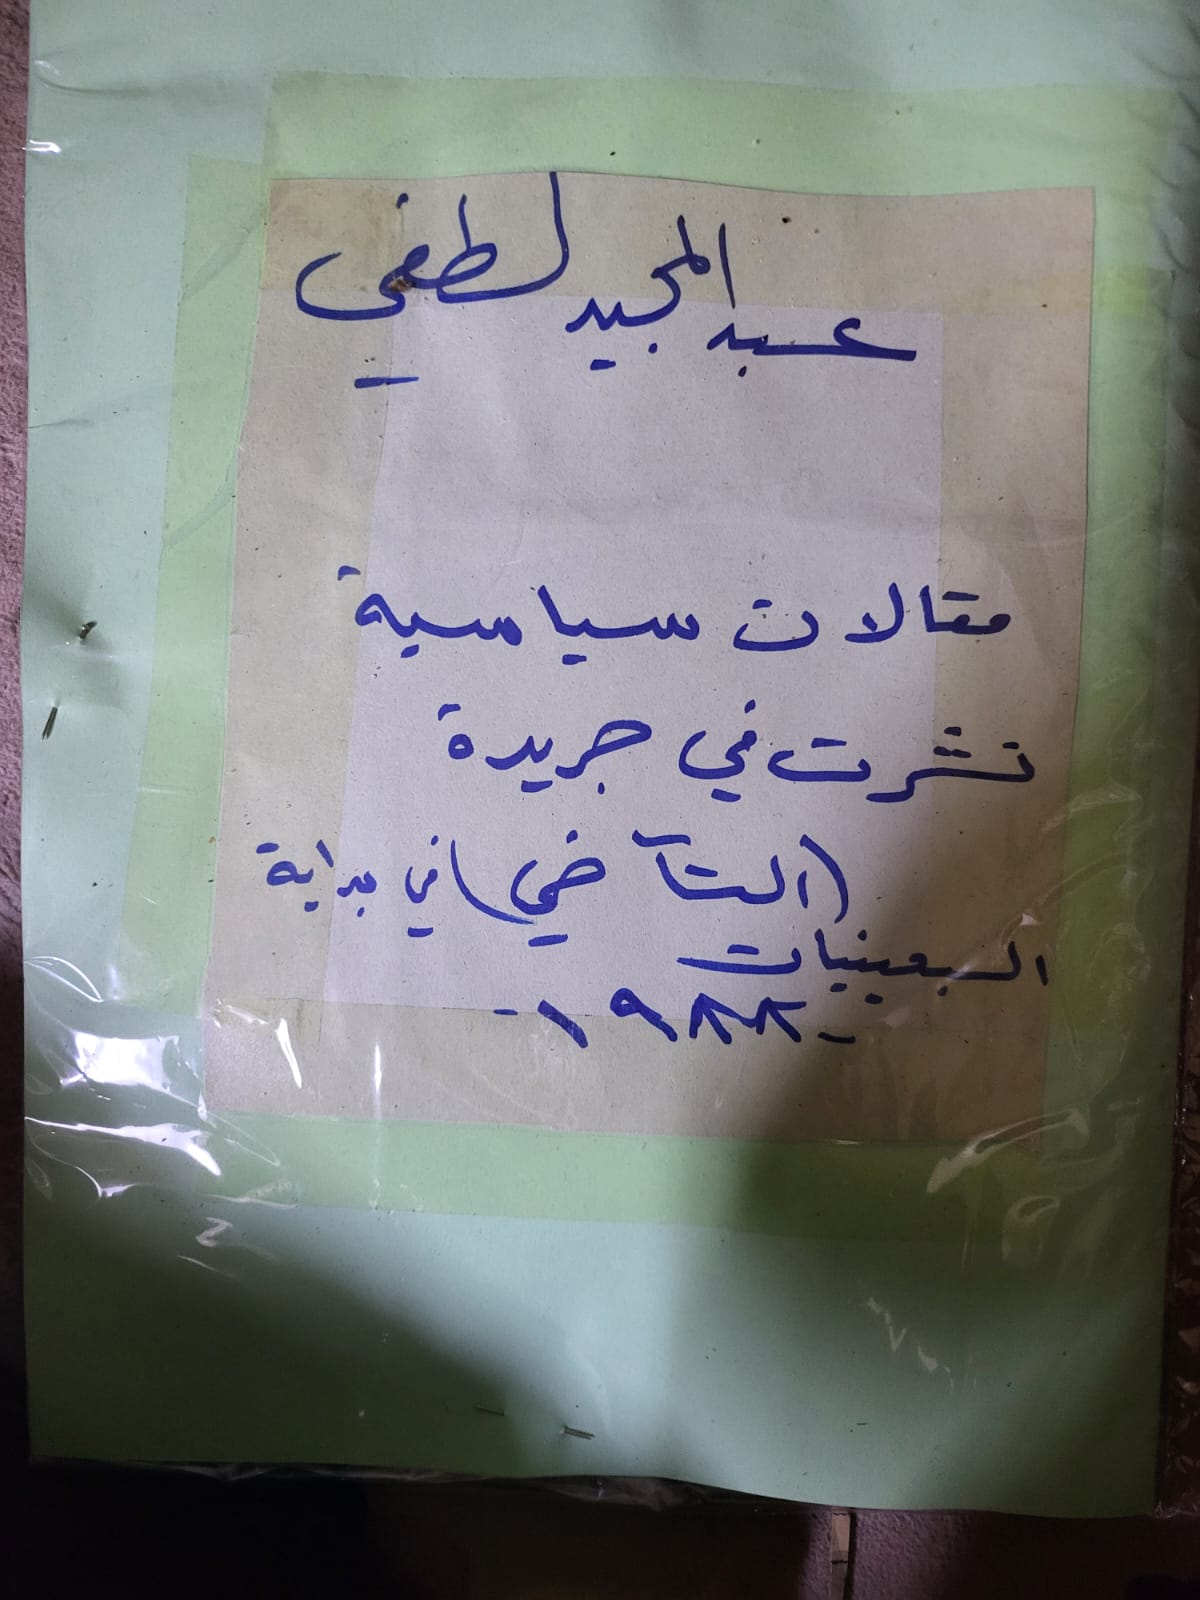 عبد المجيد لطفي
مقالات سياسية
نشرت في جريدة
(التآخي) في بداية
السبعينيات
-١٩٨٨-